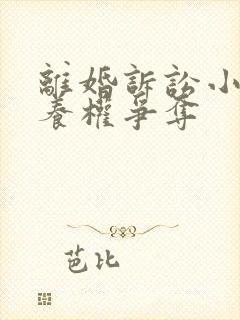 離婚訴訟小
養權爭奪
芭比